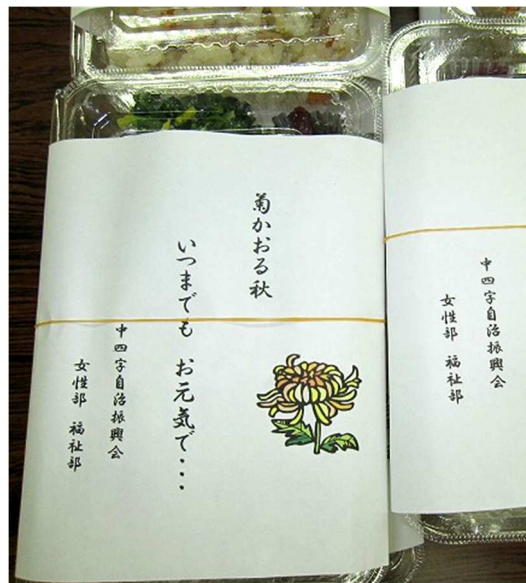 菊かおる秋
いつまでも お元気で・・・
中四字自治振興会
女性部 福祉部
中四字自治振興会
女性部 福祉部